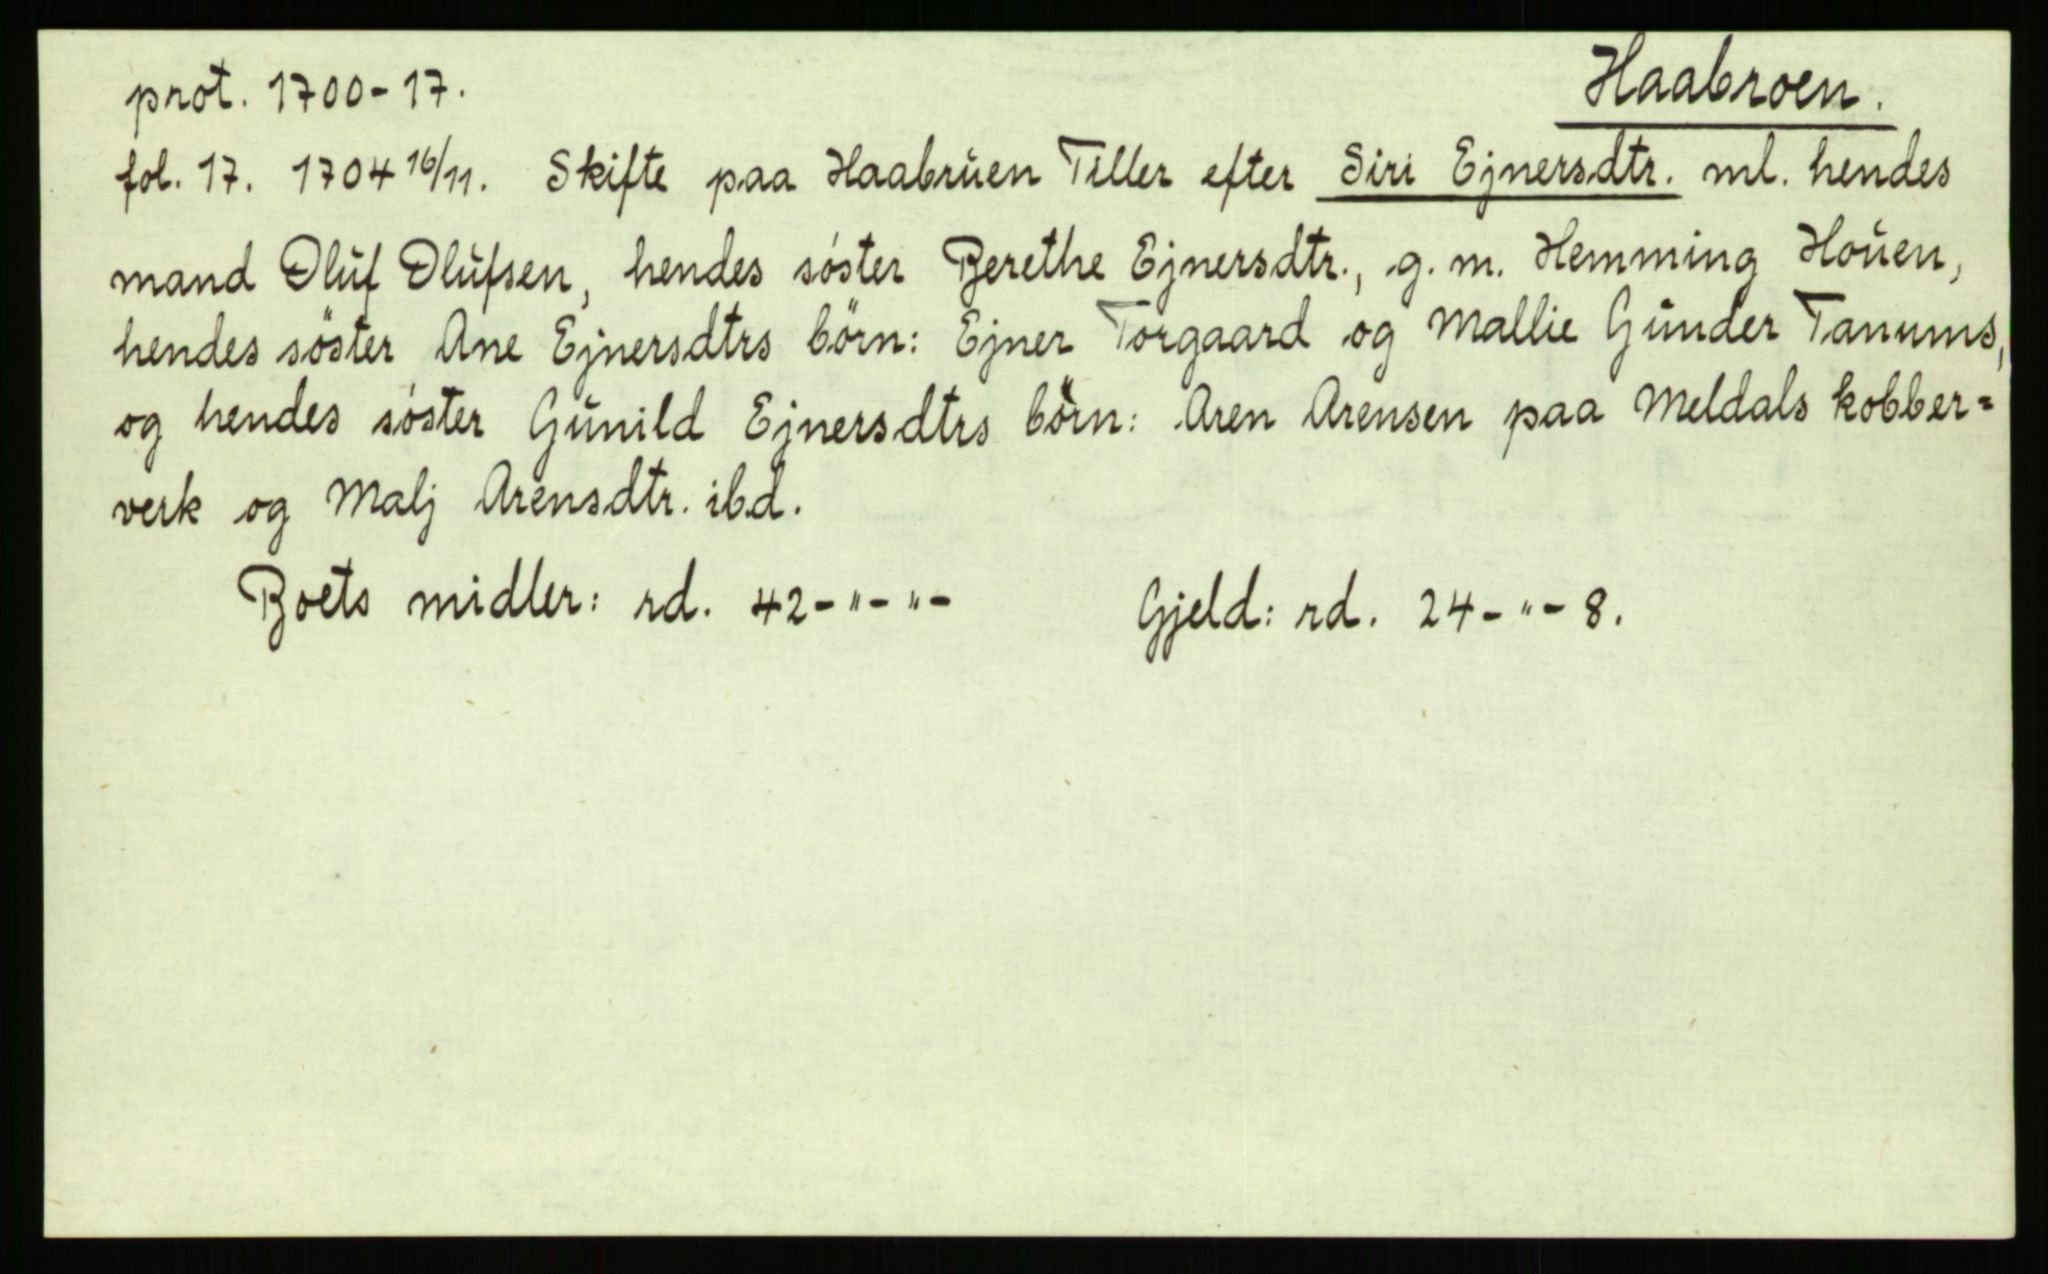 prot. 1700-17.
Haabroen.
fol. 17. 1704 16/11. Skifte paa Haabrŭen Tiller efter Siri Ejnersdtr. ml. hendes
mand Olŭf Olŭfsen, hendes söster Berethe Ejnersdtr., g. m. Hemming Hoŭen,
hendes söster Ane Ejnersdtrs börn: Ejner Torgaard og Mallie Gŭnder Tanums,
og hendes söster Gŭnild Ejnersdtrs börn: Aren Arensen paa Meldals kobber=
verk og Malj Arensdtr. ibd.
Boets midler: rd. 42-"-"- Gjeld: rd. 24-"-8.